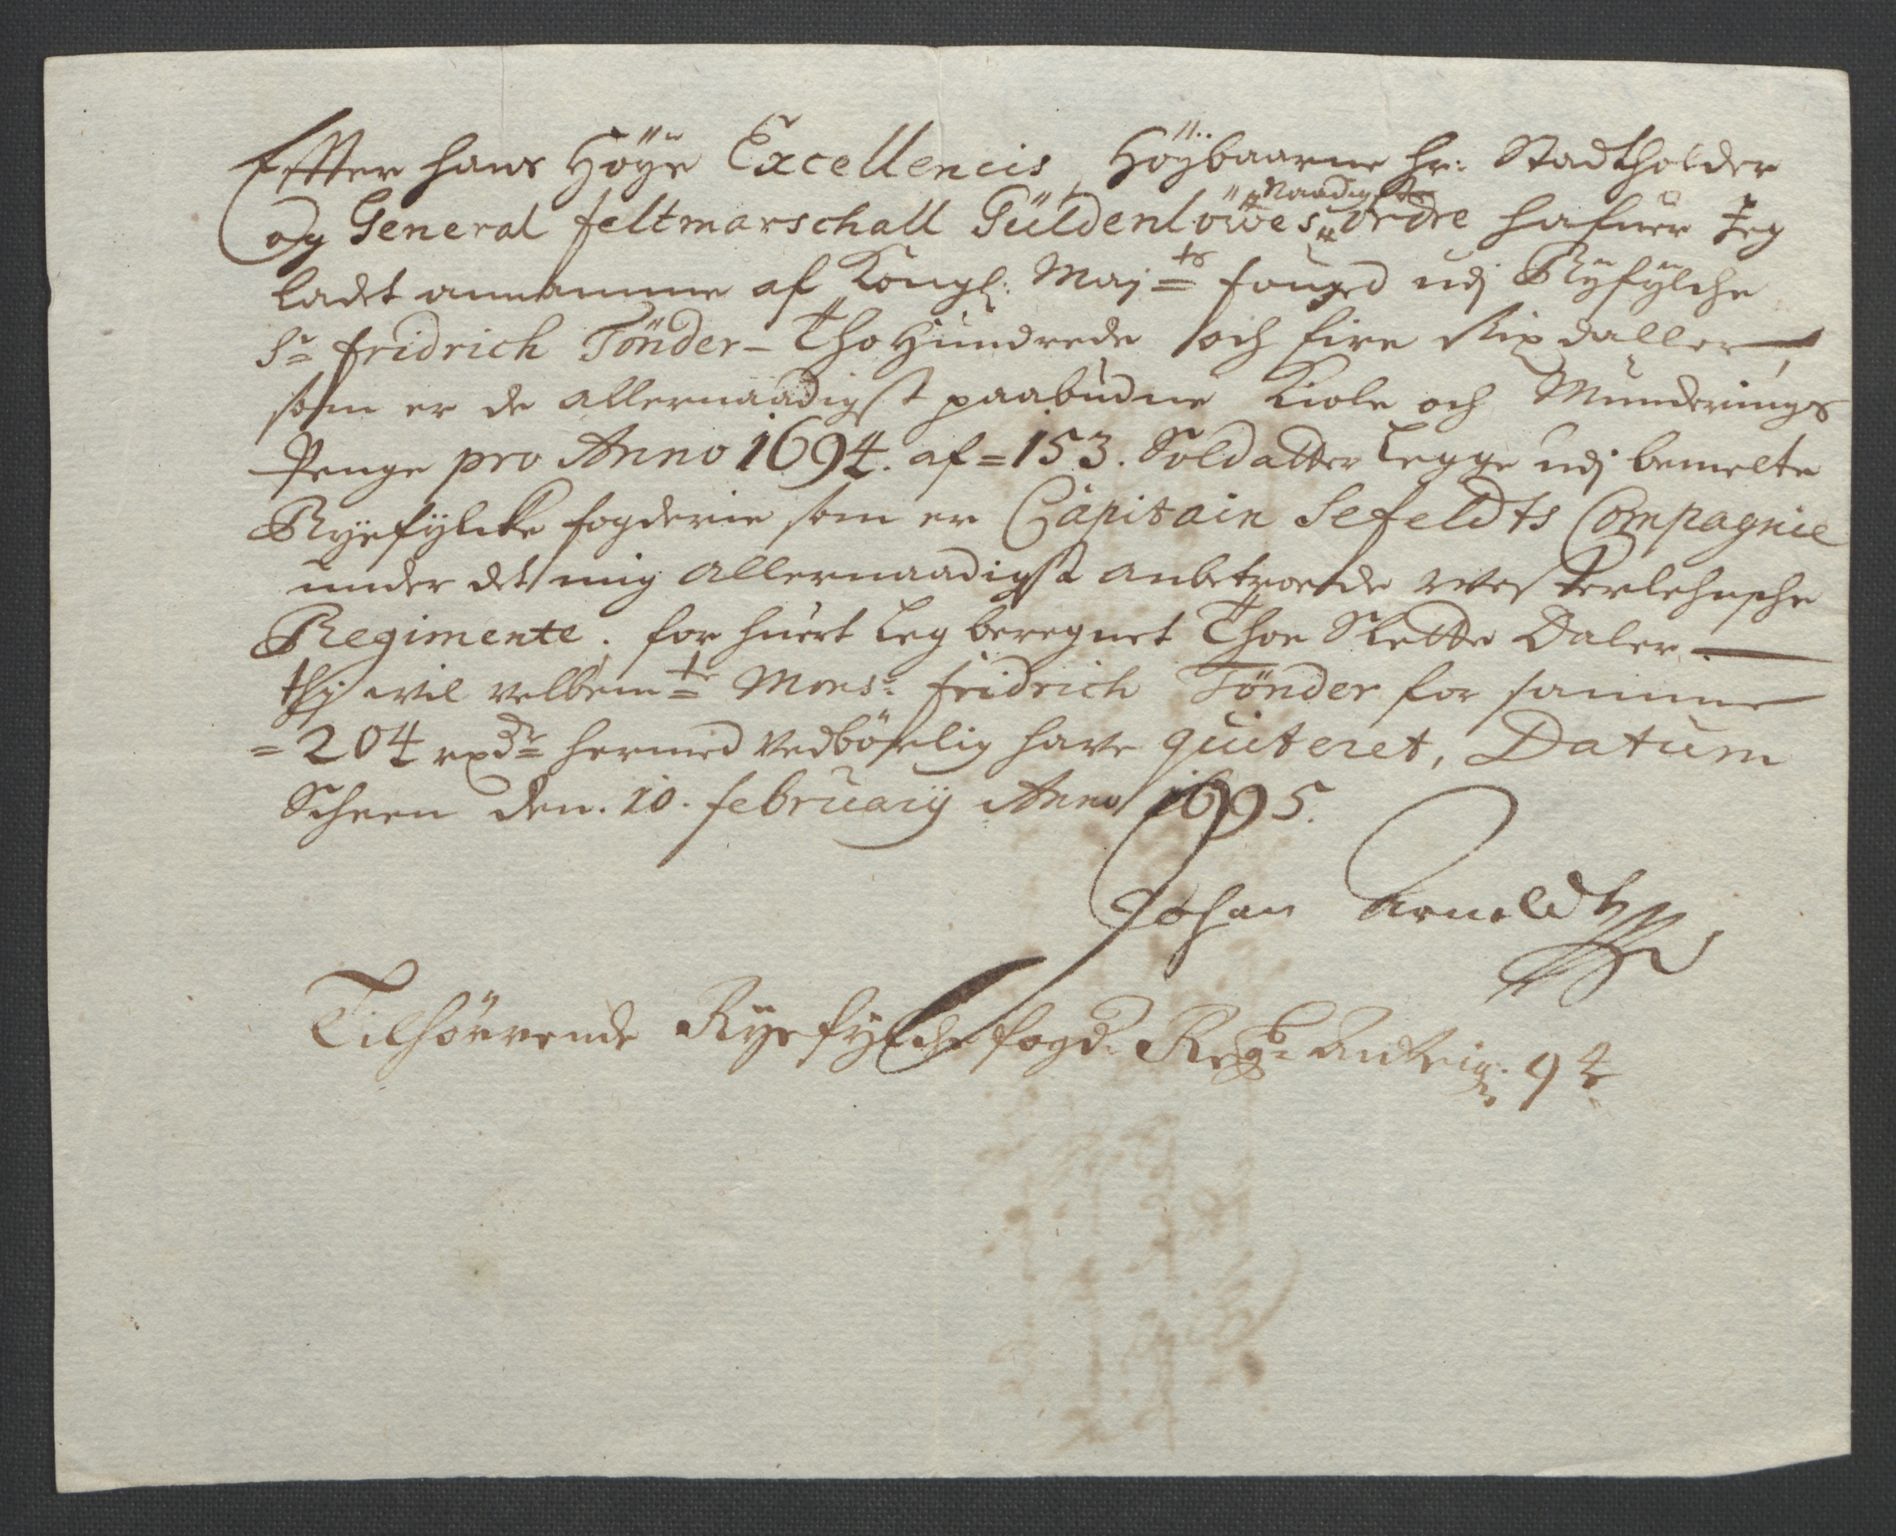 Effter hans Höÿe Excellencis, Höÿbaarne hr: Stadtholder
og General feltmarschall Güldenlöwes naadigste ordre hafuer Jeg
ladet annamme af Kongl: Maj:ts fouged udj Rÿfÿlche
Sr fridrich Tönder – Tho Hundrede och fire Rixdaller,
som er de allernaadigst paabudne Kiole och Munderings
Penge pro Anno 1694. af = 153. Soldatter Legge udj bemelte
Ryefylcke fogderie som er Capitain Sefeldts Compagnie
under det mig allernaadigst anbetroede Westerlehnsche
Regimente. for huert Leg beregnet Thoe Slette Daler –
thj wil velbemte Monsr: fridrich Tönder for samme
= 204 rxdr hermed vedbörlig have quiteret, Datum
Scheen den. 10. februarÿ Anno 1695.
Johan Arnoldt
Tilhörrende Ryefÿlche fogd: Regn: 94